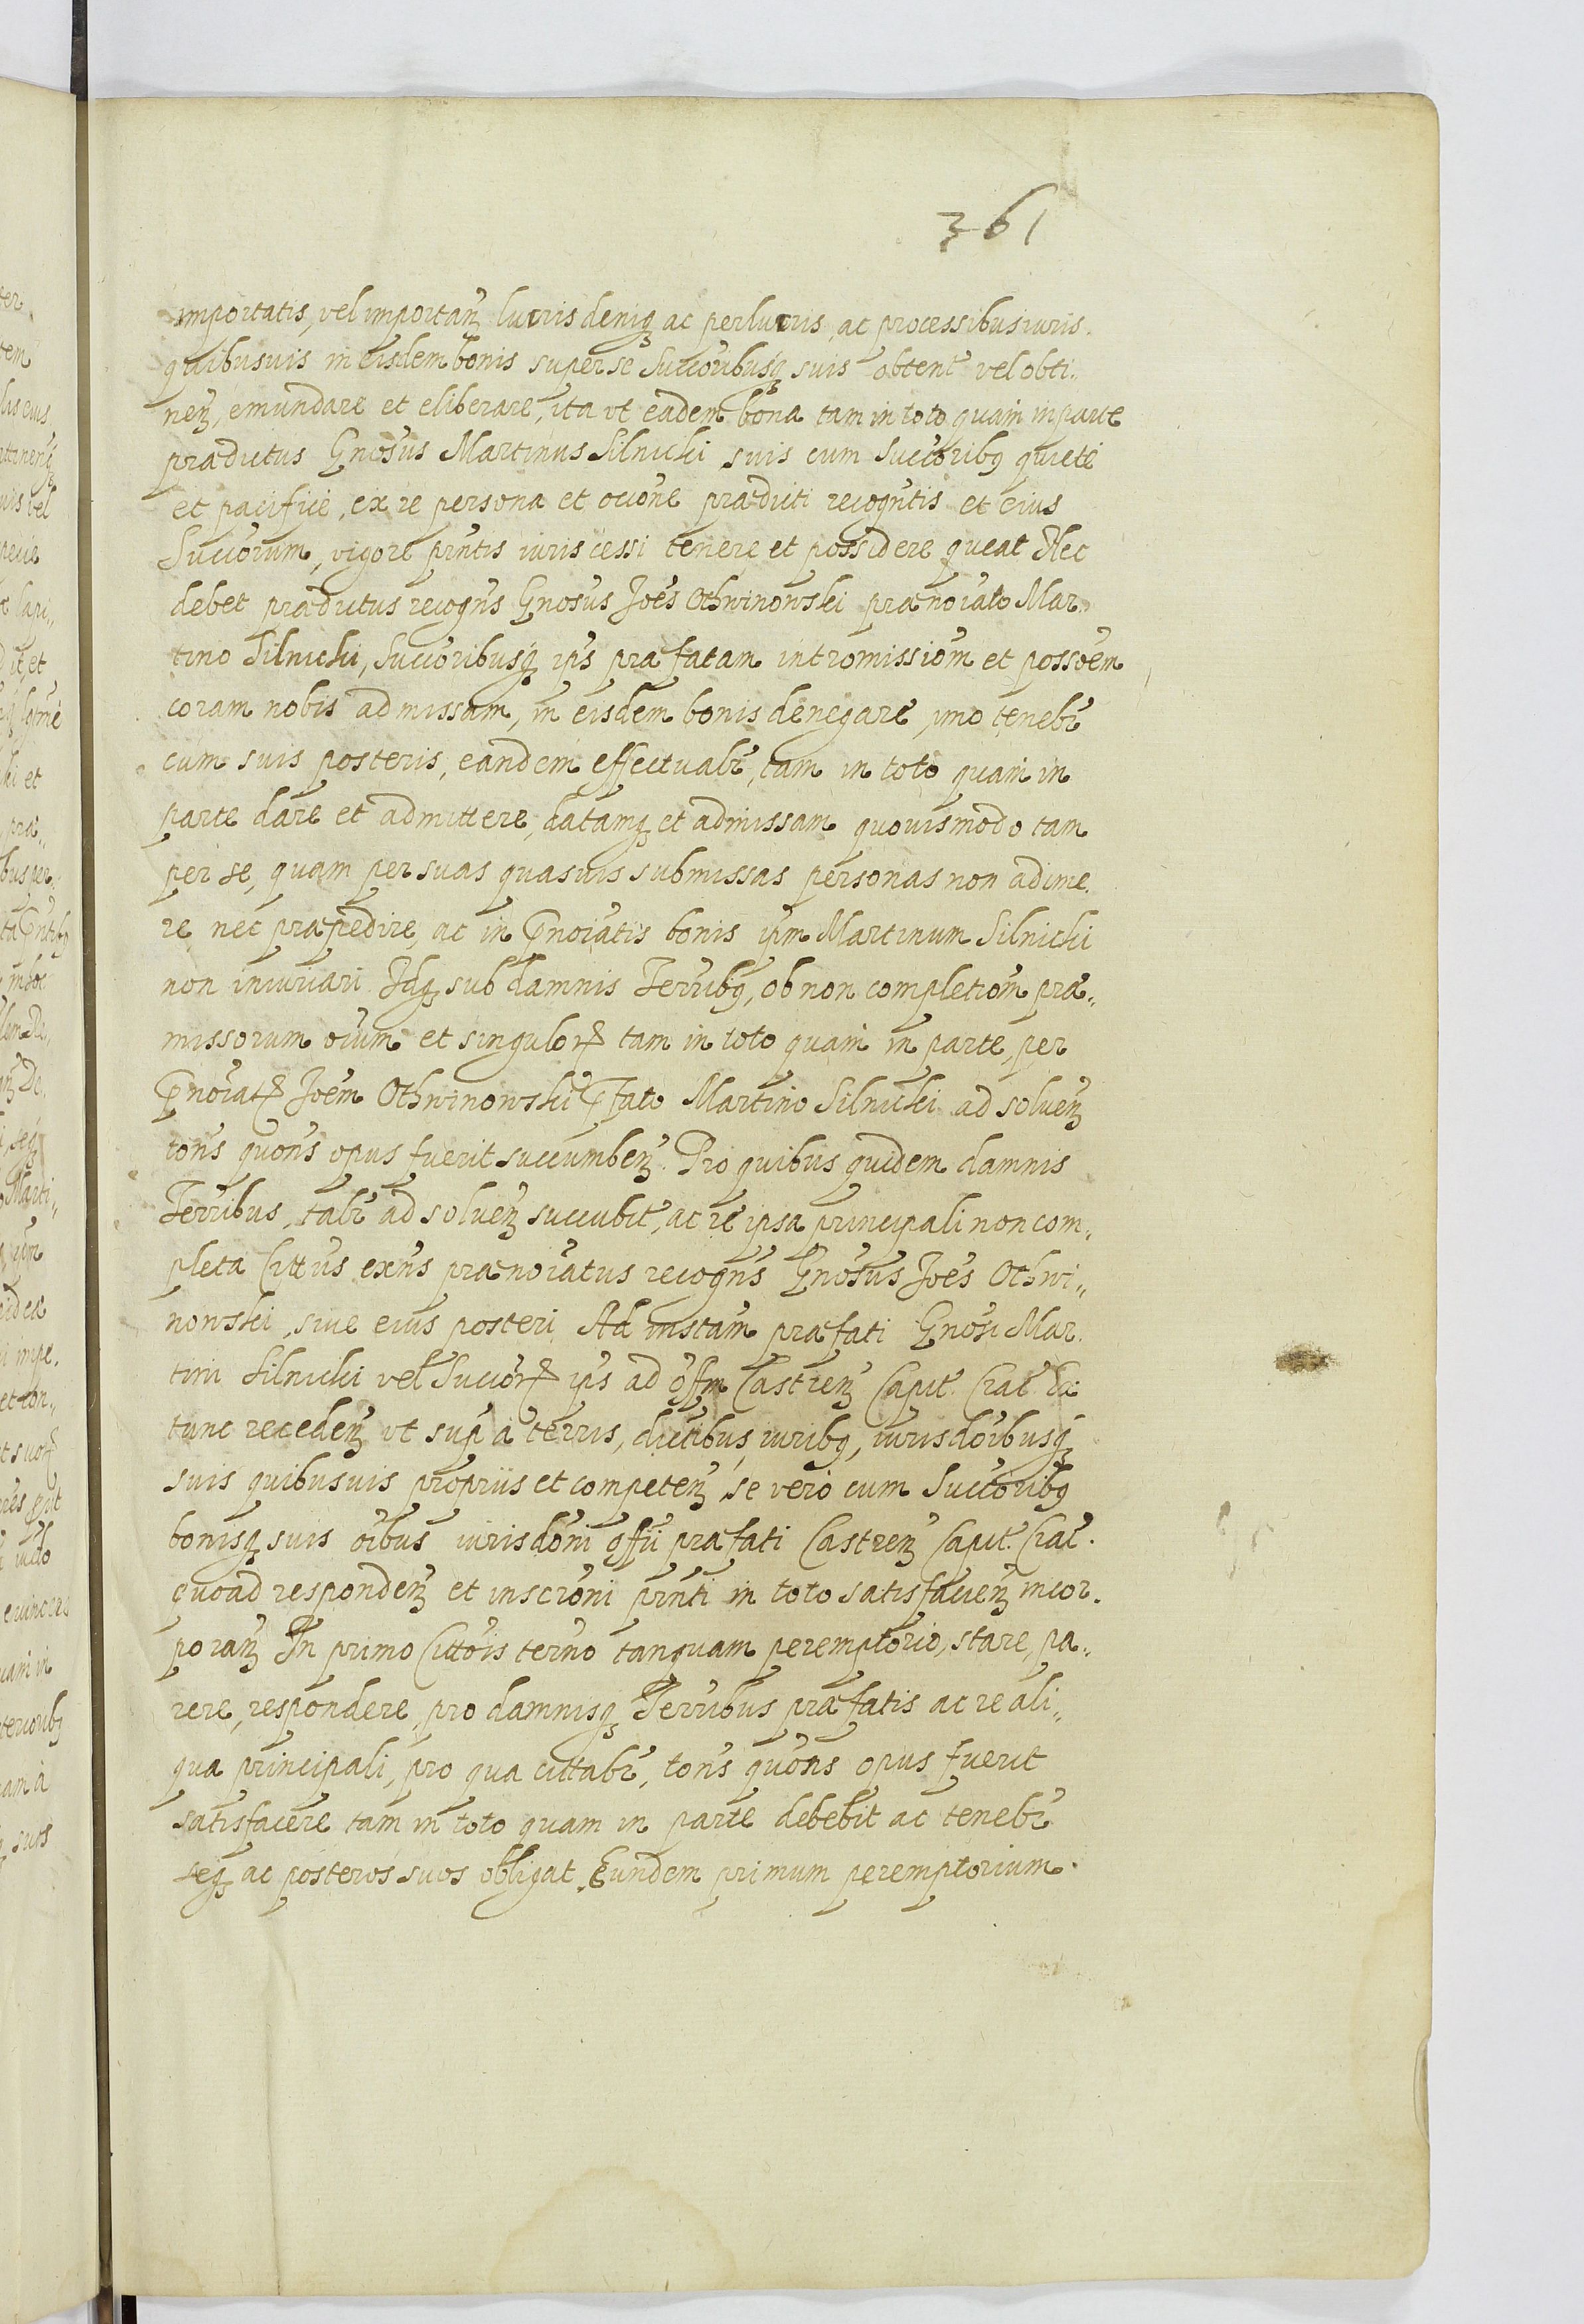 361
importatis, vel importanꝫ lucris deniqꝫ ac perlucris, ac processibus iuris.
quibusuis in eisdem bonis super se Succoribusqꝫ suis obtent vel obti„
nenꝫ, emundare et eliberare, ita vt eadem bona tam in toto quam in parte
prædictus Gnosus Martinus Silnicki suis cum Succoribꝫ quiete
et pacifice, ex re persona et occone prædicti recogntis et eius
Succorum, vigore pntis iuris cessi tenere et possidere queat Nec
debet prædictus recogns Gnosus Joes Othwinowski prænoiato Mar„
tino Silnicki, Succoribusqꝫ ips præfatam intromissiom et possoem
coram nobis admissam, in eisdem bonis denegare, imo tenebr
cum suis posteris, eandem effectuabr, tam in toto quam in
parte dare et admittere, datamqꝫ et admissam quouismodo tam
per se, quam per suas quasuis submissas personas non adime.
re nec præpedire, ac in pnoiatis bonis ipm Martinum Silnicki
non iniuriari Idqꝫ sub damnis Terribꝫ, ob non completiom præ„
missorum oium et singuloꝝ tam in toto quam in parte, per
pnoiatꝝ Joem Othwinowski pfato Martino Silnicki ad soluenꝫ
tons quons opus fuerit succumbenꝫ. Pro quibus quidem damnis
Terribus, talr ad soluenꝫ succubit, ac re ipsa principali non com„
pleta Cittus exns prænoiatus recogns Gnosus Joes Othwi„
nowski, siue eius posteri Ad instam præfati Gnosi Mar.
tini Silnicki vel Succoꝝ ips ad offm Castrenꝫ Capit. Crac. Ex
tunc recedenꝫ vt sup a terris, dictibus, iuribꝫ, iurisdoibusqꝫ
suis quibusuis propriis et competenꝫ, se vero cum Succoribꝫ
bonisqꝫ suis oibus iurisdoni offii præfati Castrenꝫ Capit. Crac.
quoad respondenꝫ et inscroni pnti in toto satisfacienꝫ incor.
poranꝫ In primo Cittois terno tanquam peremptorio, stare, pa„
rere, respondere, pro damnisqꝫ Terribus præfatis ac re ali„
qua principali, pro qua cittabr, tons quons opus fuerit
satisfacere tam in toto quam in parte debebit ac tenebr
seqꝫ ac posteros suos obligat Eundem primum peremptorium.